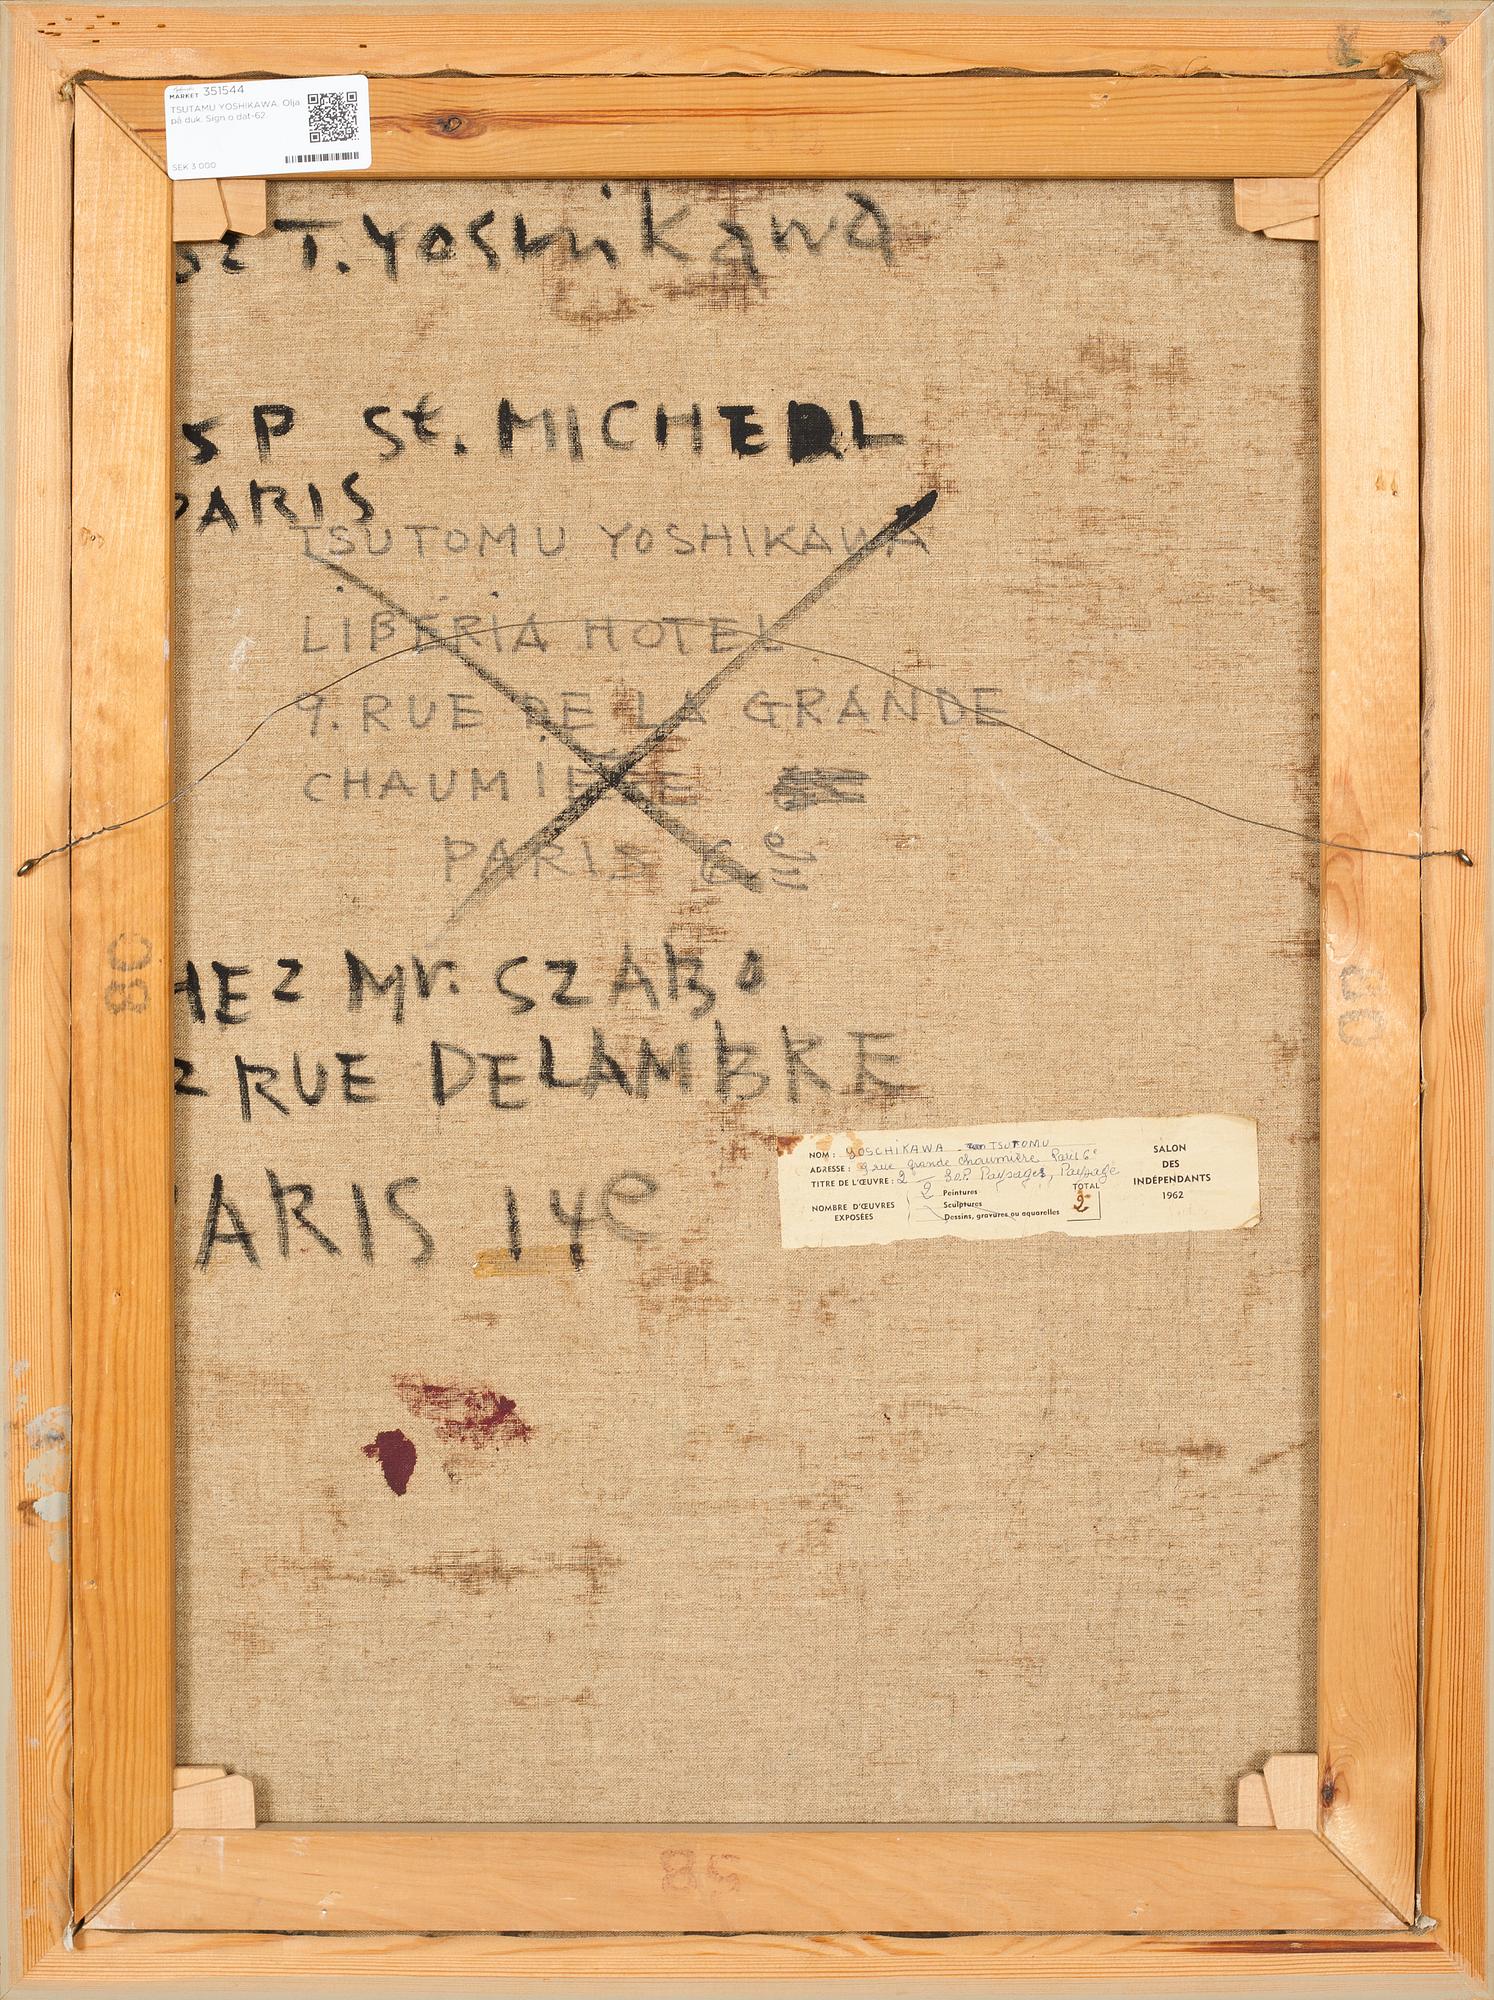 MARKET 351544
TSUTAMU YOSHIKAWA. Olja
på duk. Sign o dat-62.
SEK 3 000
T. Yoshikawa
5 P St. MICHEL
PARIS
TSUTOMU YOSHIKAWA
LIBERIA HOTEL
9. RUE DE LA GRANDE
CHAUMIÈRE
PARIS 6ème
HEZ Mr. SZABO
2 RUE DELAMBRE
ARIS 14e
80
80
85
NOM : YOSCHIKAWA TSUTOMU
ADRESSE : 9 rue grande chaumière Paris 6e
TITRE DE L'ŒUVRE : 2 Paysages, Paysage
NOMBRE D'ŒUVRES EXPOSÉES
2 Peintures
Sculptures
Dessins, gravures ou aquarelles
TOTAL
2
SALON
DES
INDÉPENDANTS
1962